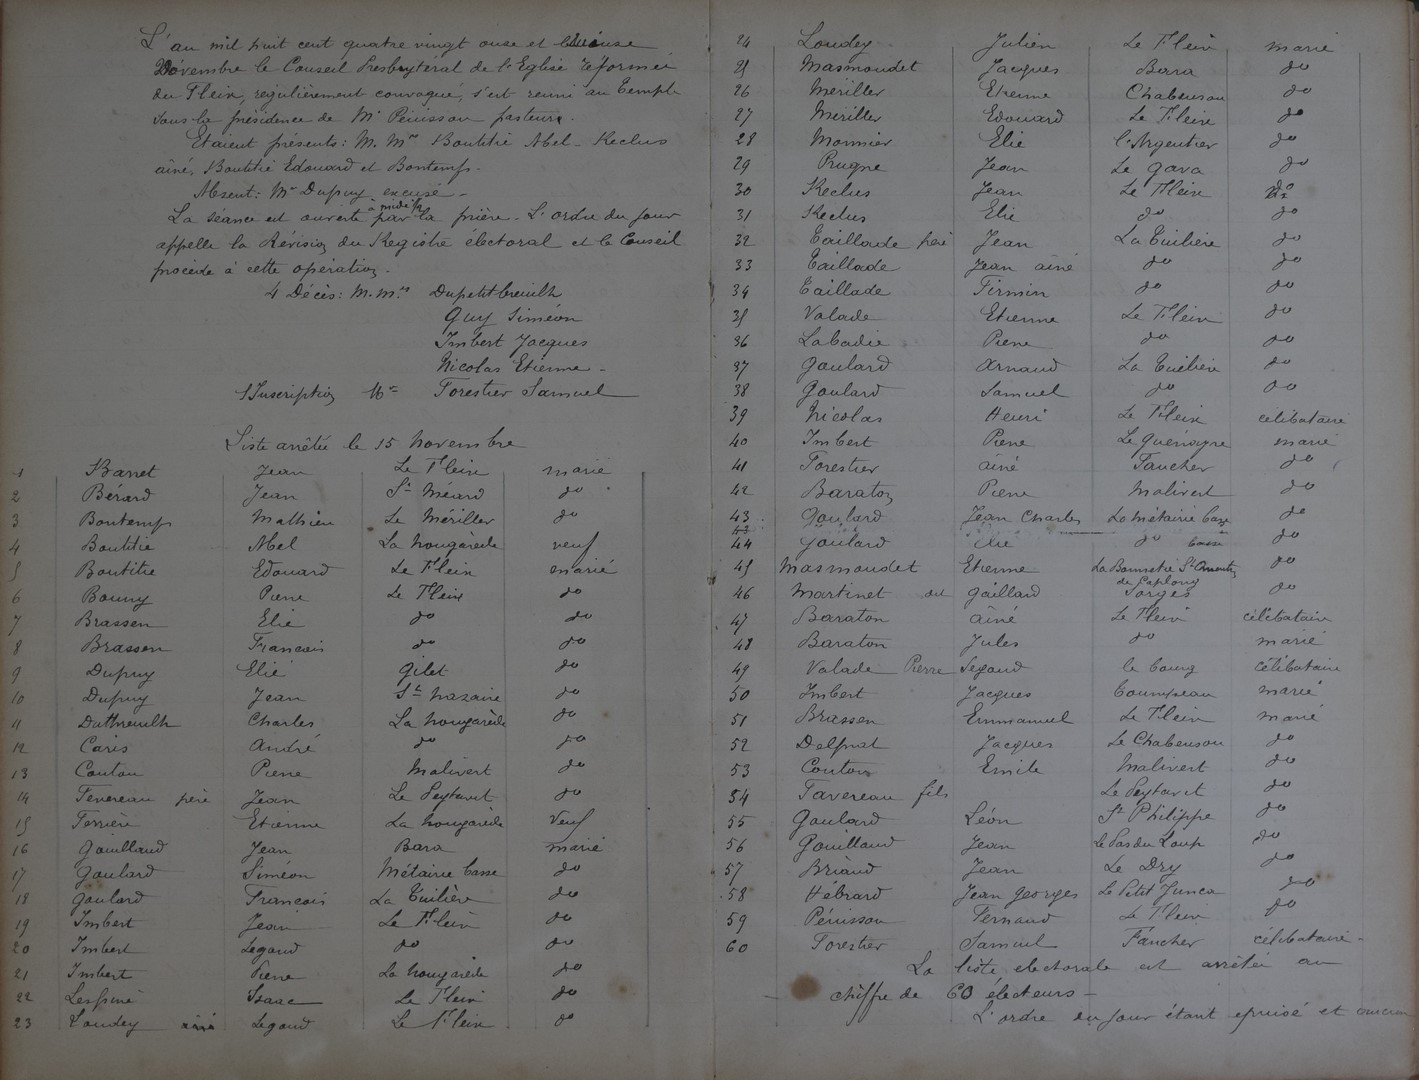 L'an mil huit cent quatre vingt onze et le quinze
Novembre le Conseil Presbytéral de l'Eglise réformée
du Fleix, régulièrement convoqué, s'est reuni au Temple
sous la présidence de Mr Pénisson pasteur.
Etaient présents: M.Mrs Boutitié Abel - Reclus
ainé, Boutitié Edouard et Bontemps.
Absent: Mr Dupuy excusé -
La séance est ouverte à midi ½ par la prière - L'ordre du jour
appelle la Révision du Registre électoral et le Conseil
procède à cette opération.
4 Décès: M.Mrs Dupetit
Guy Siméon
Imbert Jacques
Nicolas Etienne -
1 Inscription Mr Forestier Samuel
Liste arrêtée le 15 Novembre
1 Barret Jean Le Fleix marié
2 Bérard Jean St Méard do
3 Bontemps Mathieu Le Mériller do
4 Boutitié Abel La Nougarède veuf
5 Boutitié Edouard Le Fleix marié
6 Bouny Pierre Le Fleix do
7 Brassen Elie do do
8 Brassen Francois do do
9 Dupuy Elie Gilet do
10 Dupuy Jean St Nazaire do
11 Duthreuilh Charles La Nougarède do
12 Caris André do do
13 Coutou Pierre Malivert do
14 Fevereau père Jean Le Peytavit do
15 Ferrière Etienne La Nougarède Veuf
16 Gouilland Jean Bara marié
17 Goulard Siméon Métairie basse do
18 Goulard Francois La Tuilière do
19 Imbert Jean Le Fleix do
20 Imbert Legaud do do
21 Imbert Pierre La Nougarède do
22 Lespiné Isaac Le Fleix do
23 Loudey ainé Legaud Le Fleix do
24 Loudey Julien Le Fleix marié
25 Masmoudet Jacques Bara do
26 Mériller Etienne Chabenson do
27 Mériller Edouard Le Fleix do
28 Monnier Elie l'Argentier do
29 Prugne Jean Le Gava do
30 Reclus Jean Le Fleix do
31 Reclus Elie do do
32 Taillade père Jean La Tuilière do
33 Taillade Jean ainé do do
34 Taillade Firmin do do
35 Valade Etienne Le Fleix do
36 Labadie Pierre do do
37 Goulard Arnaud La Tuilière do
38 Goulard Samuel do do
39 Nicolas Henri Le Fleix célibataire
40 Imbert Pierre marié
41 Forestier ainé Faucher do
42 Baraton Pierre Malivert do
43 Goulard Jean Charles La Métairie basse do
44 Goulard Elie do basse do
45 Masmoudet Etienne La Bonnetie St do
46 Martinet dit Gaillard Sorges do
47 Baraton ainé Le Fleix célibataire
48 Baraton Jules do marié
49 Valade Pierre Legaud le bourg célibataire
50 Imbert Jacques marié
51 Brassen Emmanuel Le Fleix marié
52 Delprat Jacques Le Chabenson do
53 Coutou Emile Malivert do
54 Favereau fils Le Peytavit do
55 Goulard Léon St Philippe do
56 Gouilland Jean Le Pas du Loup do
57 Briaud Jean Le Dry do
58 Hébrard Jean Georges Le Petit Junca do
59 Pénisson Fernand Le Fleix do
60 Forestier Samuel Faucher célibataire -
La liste electorale est arrêtée au
chiffre de 60 électeurs -
L'ordre du jour étant epuisé et aucun